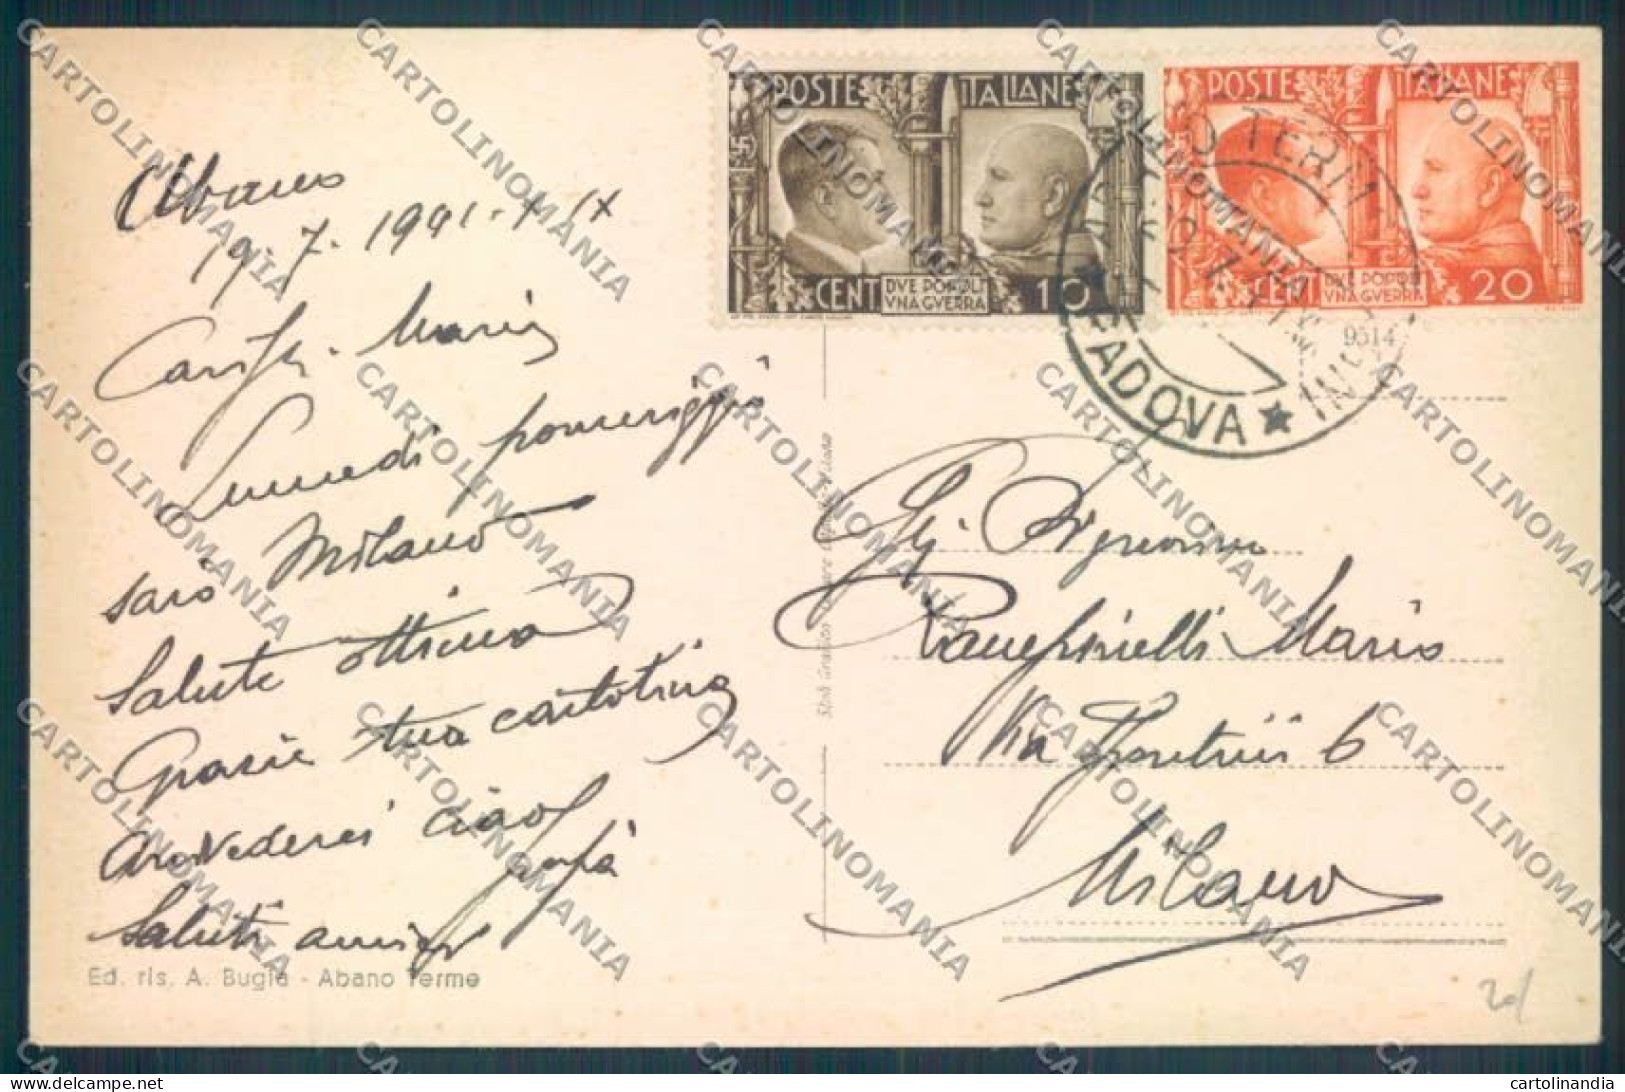 Abano
19. 7. 1941. XIX
Mario
Lunedì pomeriggio
sarò Milano
Salute ottima
Grazie tua cartolina
arrivederci ciao
Saluti amici
Ed. ris. A. Bugia - Abano Terme
POSTE ITALIANE
CENT DVE POPOLI 10
VNA GVERRA
POSTE ITALIANE
CENT DVE POPOLI 20
VNA GVERRA
ABANO TERME
PADOVA
9514
Mario
Via 6
Milano
CARTOLINOMANIA
cartolinandia